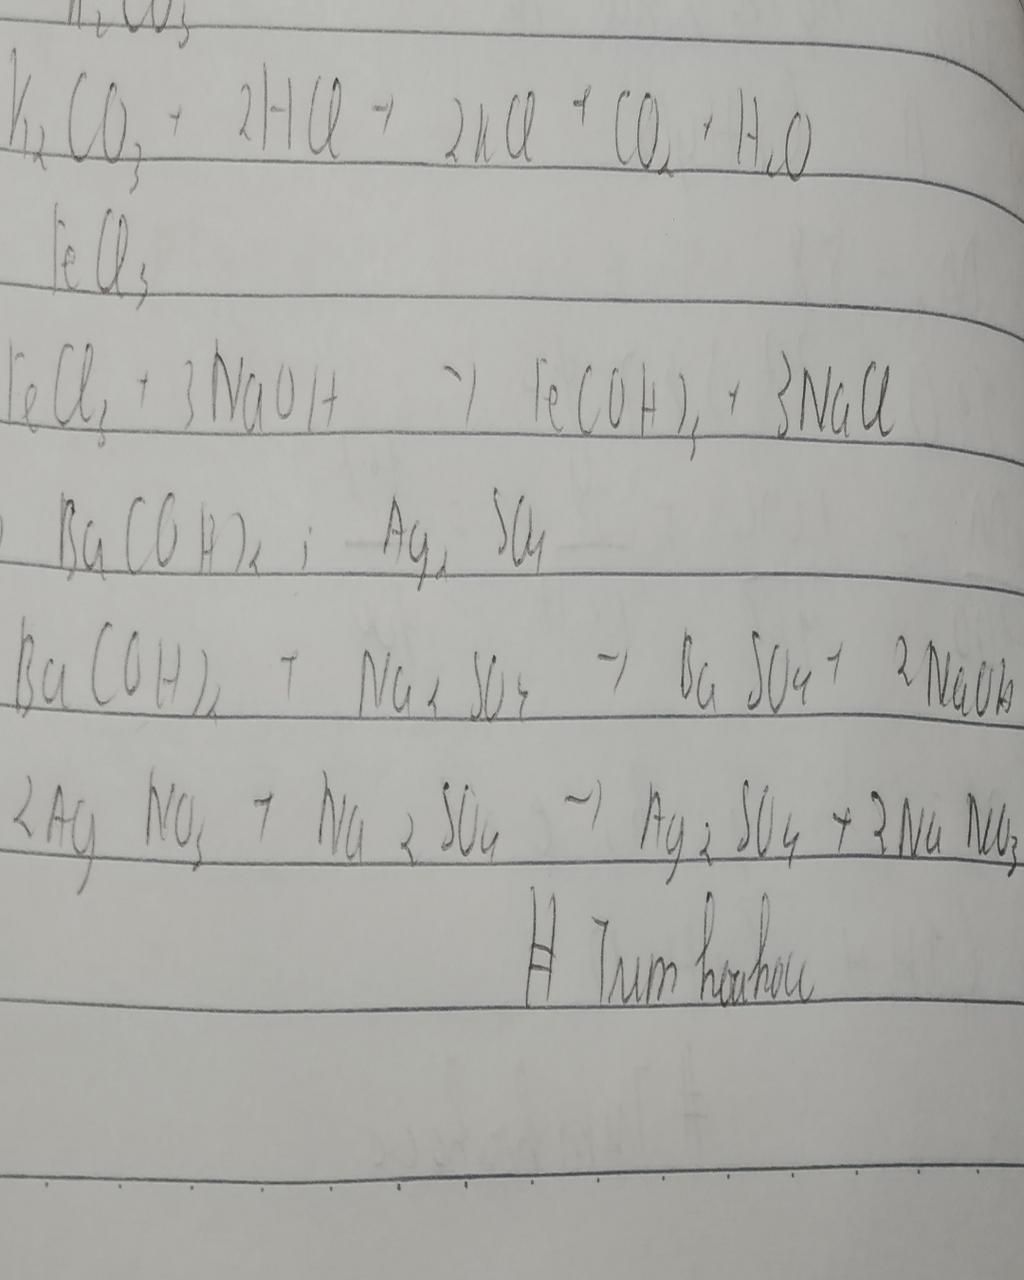 K₂CO₃
K₂CO₃ + 2HCl → 2KCl + CO₂ + H₂O
FeCl₃
FeCl₃ + 3NaOH → Fe(OH)₃ + 3NaCl
Ba(OH)₂ ; Ag₂SO₄
Ba(OH)₂ + Na₂SO₄ → BaSO₄ + 2NaOH
2AgNO₃ + Na₂SO₄ → Ag₂SO₄ + 2NaNO₃
# Trum hoahoc